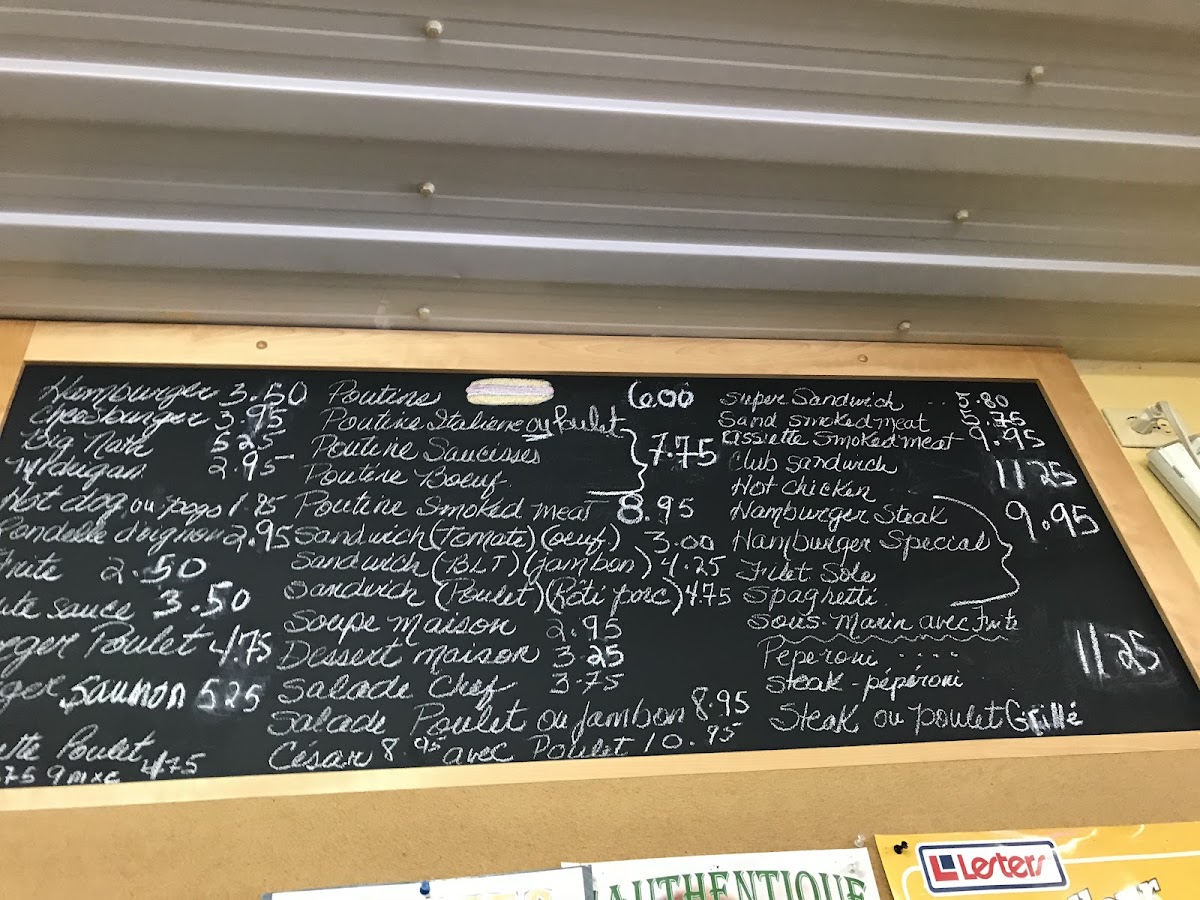 Hamburger 3.50
Cheesburger 3.95
Big Nath 5.25
Michigan 2.95
Hot dog ou pogo 1.95
Rondelle d'oignon 2.95
Frite 2.50
sauce 3.50
Poulet 4.75
Saumon 5.25
Poulet 4.75
Poutine 6.00
Poutine Italiene ou Poulet
Poutine Saucisses 7.75
Poutine Boeuf
Poutine Smoked meat 8.95
Sandwich (Tomate) (oeuf) 3.00
Sandwich (BLT) (jambon) 4.25
Sandwich (Poulet) (Rôti porc) 4.75
Soupe maison 2.95
Dessert maison 3.25
Salade Chef 3.75
Salade Poulet ou Jambon 8.95
César 8.95 avec Poulet 10.95
Super Sandwich ... 5.80
Sand smoked meat 5.75
Assiette Smoked meat 9.95
Club sandwich 11 25
Hot chicken
Hamburger Steak 9.95
Hamburger Special
Filet Sole
Spaghetti
Sous-Marin avec Frite
Peperoni .... 11 25
Steak-pépéroni
Steak ou poulet Grillé
AUTHENTIQUE
Lesters